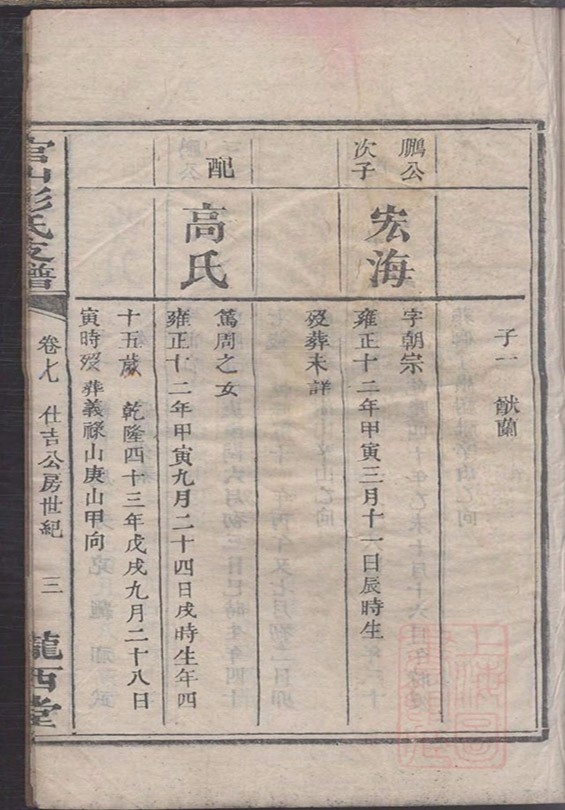 子一 猷蘭
鵬公
次子
宏海
字朝宗
雍正十二年甲寅三月十一日辰時生
歿葬未詳
配
高氏
篤周之女
雍正十二年甲寅九月二十四日戌時生年四
十五歲 乾隆四十三年戊戌九月二十八日
寅時歿葬義祿山庚山甲向
官山彭氏支譜
卷七 仕吉公房世紀 三
隴西堂